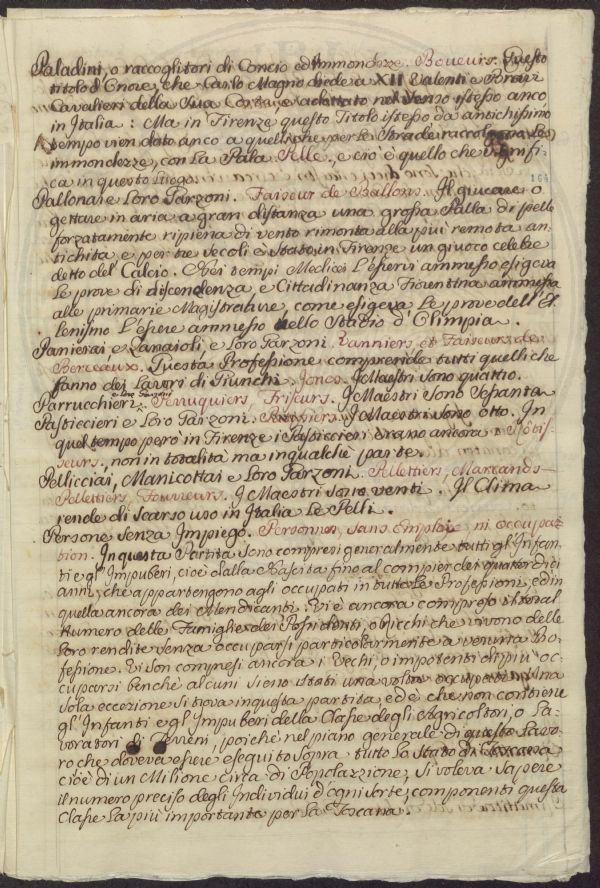 Paladini, o raccoglitori di Concio ed Immondezze. Boueurs. Questo
titolo d'Onore, che Carlo Magno diede a XII Valenti e Bravi
Cavalieri della Sua Corte, e adottato nel Senso istesso anco
in Italia: Ma in Firenze questo Titolo istesso da antichissimo
tempo vien dato anco a quelli che per le Strade raccolgono le
immondezze, con La Pala. Pelle, e ciò è quello che signifi-
ca in questo Luogo.
164
Pallonai e Loro Garzoni. Faiseur de Ballons. Il giucare o
gettare in aria a gran distanza una grossa Palla di pelle
forzatamente ripiena di vento rimonta alla più remota an-
tichita, e per tre secoli è Stato in Firenze un giuoco celebre
detto del Calcio. Nei tempi Medicei L'esservi ammesso esigeva
Le prove di discendenza, e Cittadinanza Fiorentina ammessa
alle primarie Magistrature, come esigeva Le prove dell'El-
lenismo L'essere ammesso nello Stadio d'Olimpia.
Panierai, e Zanaioli, e Loro Garzoni. Vanniers et Faiseurs de
Berceaux. Questa Professione comprende tutti quelli che
fanno dei Lavori di Giunchi. Joncs. I Maestri sono quattro.
Parrucchieri e loro Garzoni. Perruquiers, Friseurs. I Maestri sono Settanta
Pasticcieri e Loro Garzoni. I Maestri sono otto. In
quel tempo però in Firenze i Pasticcieri erano ancora Rôtis-
seurs, non in totalità ma in qualche parte.
Pellicciai, Manicottai e Loro Garzoni. Pellettiers, Marcands-
Pellettiers, Fourreurs. I Maestri sono venti. Il Clima
rende di scarso uso in Italia Le Pelli.
Persone Senza Impiego. Personnes, sans Emploie, ni occupa-
tion. In questa Partita sono compresi generalmente tutti gl'Infan-
ti e gl'Impuberi, cioè dalla Nascita fino al compier dei quattordici
anni, che appartengono agli occupati in tutte Le Professioni, ed in
quella ancora dei Mendicanti. Vi è ancora compreso il total
Numero delle Famiglie dei Possidenti, o Ricchi che vivono delle
Loro rendite senza occuparsi particolarmente a veruna Pro-
fessione. Vi son compresi ancora i Vechi, o impotenti di più oc-
cuparsi benchè alcuni sieno stati una volta occupati. Una
sola eccezione si trova in questa partita, ed è che non contiene
gl'Infanti e gl'Impuberi della Classe degli Agricoltori, o La-
voratori di Terreni, poichè nel piano generale di questo Lavo-
ro che doveva essere eseguito sopra tutto lo Stato di Toscana
cioè di un Milione circa di Popolazzione, si voleva sapere
il numero preciso degli Individui d'ogni sorte, componenti questa
Classe La più importante per La Toscana.